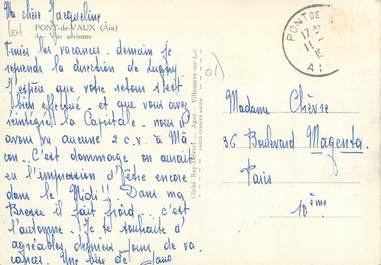 Ma chère Jacqueline
PONT-de-VAUX (Ain)
Vue aérienne
Finies les vacances. demain je
reprends la direction de Lugny
J'espère que votre retour s'est
bien effectué et que vous avez
réintégré la Capitale. nous
avons vu aucune 2 c.v. à Mâ
con. C'est dommage on aurait
eu l'impression d'être encore
dans le Midi!! Dans ma
Bresse il fait froid. c'est
l'automne. Je te souhaite d'
agréables derniers jours de va
cances. Une bise de
PONT DE
17
11
A
Madame Chèvre
36 Boulevard Magenta.
Paris
10ème